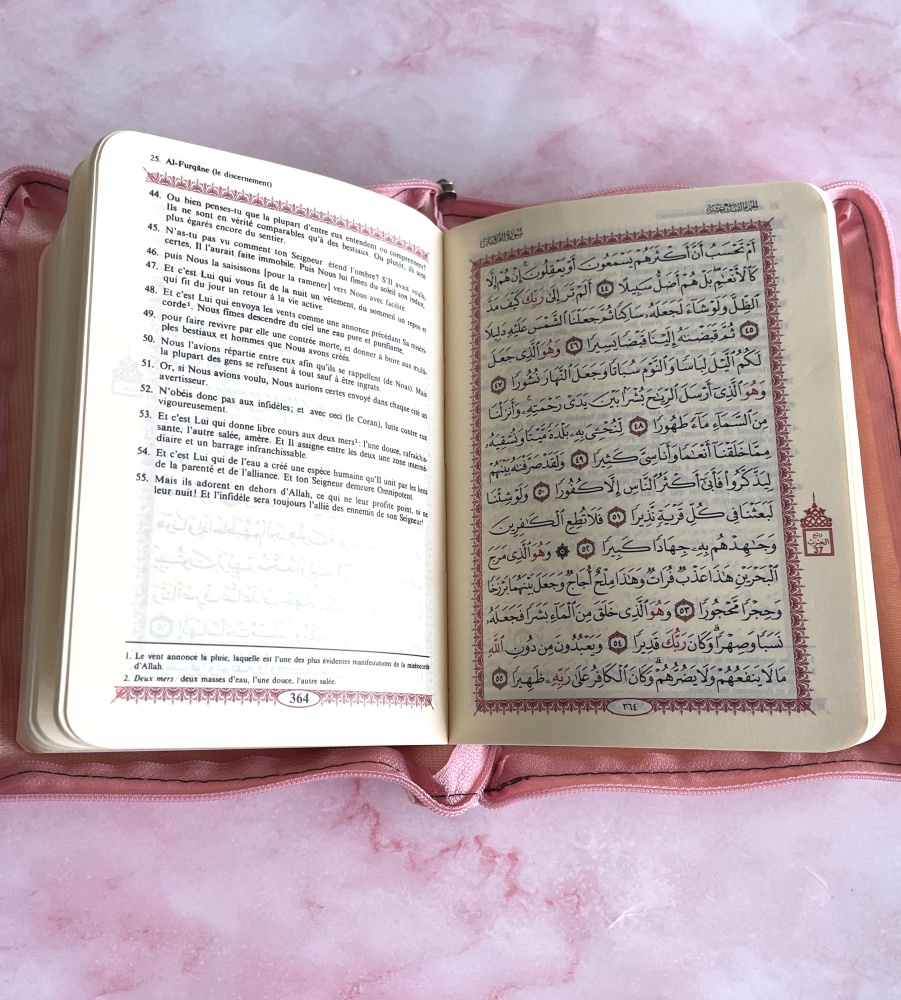 25. Al-Furqâne (le discernement)
44. Ou bien penses-tu que la plupart d'entre eux entendent ou comprennent?
Ils ne sont en vérité comparables qu'à des bestiaux. Ou plutôt, ils sont
plus égarés encore du sentier.
45. N'as-tu pas vu comment ton Seigneur étend l'ombre? S'Il avait voulu,
certes, Il l'aurait faite immobile. Puis Nous lui fîmes du soleil son indice,
46. puis Nous la saisissons [pour la ramener] vers Nous avec facilité.
47. Et c'est Lui qui vous fit de la nuit un vêtement, du sommeil un repos et
qui fit du jour un retour à la vie active.
48. Et c'est Lui qui envoya les vents comme une annonce précédant Sa miséri-
corde¹. Nous fîmes descendre du ciel une eau pure et purifiante,
49. pour faire revivre par elle une contrée morte, et donner à boire aux multi-
ples bestiaux et hommes que Nous avons créés.
50. Nous l'avions répartie entre eux afin qu'ils se rappellent (de Nous). Mais
la plupart des gens se refusent à tout sauf à être ingrats.
51. Or, si Nous avions voulu, Nous aurions certes envoyé dans chaque cité un
avertisseur.
52. N'obéis donc pas aux infidèles; et avec ceci (le Coran), lutte contre eux
vigoureusement.
53. Et c'est Lui qui donne libre cours aux deux mers²: l'une douce, rafraîchis-
sante, l'autre salée, amère. Et Il assigne entre les deux une zone intermé-
diaire et un barrage infranchissable.
54. Et c'est Lui qui de l'eau a créé une espèce humaine qu'Il unit par les liens
de la parenté et de l'alliance. Et ton Seigneur demeure Omnipotent.
55. Mais ils adorent en dehors d'Allah, ce qui ne leur profite point, ni ne
leur nuit! Et l'infidèle sera toujours l'allié des ennemis de son Seigneur!
1. Le vent annonce la pluie, laquelle est l'une des plus évidentes manifestations de la miséricorde
d'Allah.
2. Deux mers: deux masses d'eau, l'une douce, l'autre salée.
364
الجزء التاسع عشر
سورة الفرقان
أَمْ تَحْسَبُ أَنَّ أَكْثَرَهُمْ يَسْمَعُونَ أَوْ يَعْقِلُونَ إِنْ هُمْ إِلَّا
كَٱلْأَنْعَٰمِ بَلْ هُمْ أَضَلُّ سَبِيلًا ٤٤ أَلَمْ تَرَ إِلَىٰ رَبِّكَ كَيْفَ مَدَّ
ٱلظِّلَّ وَلَوْ شَآءَ لَجَعَلَهُۥ سَاكِنًا ثُمَّ جَعَلْنَا ٱلشَّمْسَ عَلَيْهِ دَلِيلًا
٤٥ ثُمَّ قَبَضْنَٰهُ إِلَيْنَا قَبْضًا يَسِيرًا ٤٦ وَهُوَ ٱلَّذِى جَعَلَ
لَكُمُ ٱلَّيْلَ لِبَاسًا وَٱلنَّوْمَ سُبَاتًا وَجَعَلَ ٱلنَّهَارَ نُشُورًا ٤٧
وَهُوَ ٱلَّذِىٓ أَرْسَلَ ٱلرِّيَٰحَ بُشْرًۢا بَيْنَ يَدَىْ رَحْمَتِهِۦ وَأَنزَلْنَا
مِنَ ٱلسَّمَآءِ مَآءً طَهُورًا ٤٨ لِّنُحْۦِىَ بِهِۦ بَلْدَةً مَّيْتًا وَنُسْقِيَهُۥ
مِمَّا خَلَقْنَآ أَنْعَٰمًا وَأَنَاسِىَّ كَثِيرًا ٤٩ وَلَقَدْ صَرَّفْنَٰهُ بَيْنَهُمْ
لِيَذَّكَّرُوا۟ فَأَبَىٰٓ أَكْثَرُ ٱلنَّاسِ إِلَّا كُفُورًا ٥٠ وَلَوْ شِئْنَا
لَبَعَثْنَا فِى كُلِّ قَرْيَةٍ نَّذِيرًا ٥١ فَلَا تُطِعِ ٱلْكَٰفِرِينَ
وَجَٰهِدْهُم بِهِۦ جِهَادًا كَبِيرًا ٥٢ ۞ وَهُوَ ٱلَّذِى مَرَجَ
ٱلْبَحْرَيْنِ هَٰذَا عَذْبٌ فُرَاتٌ وَهَٰذَا مِلْحٌ أُجَاجٌ وَجَعَلَ بَيْنَهُمَا بَرْزَخًا
وَحِجْرًا مَّحْجُورًا ٥٣ وَهُوَ ٱلَّذِى خَلَقَ مِنَ ٱلْمَآءِ بَشَرًا فَجَعَلَهُۥ
نَسَبًا وَصِهْرًا ۗ وَكَانَ رَبُّكَ قَدِيرًا ٥٤ وَيَعْبُدُونَ مِن دُونِ ٱللَّهِ
مَا لَا يَنفَعُهُمْ وَلَا يَضُرُّهُمْ ۗ وَكَانَ ٱلْكَافِرُ عَلَىٰ رَبِّهِۦ ظَهِيرًا ٥٥
ربع
الحزب
37
٣٦٤